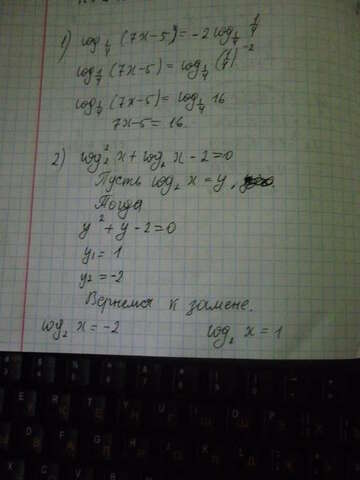 1) log_{1/4} (7x-5) = -2 log_{1/4} 1/4
log_{1/4} (7x-5) = log_{1/4} (1/4)^{-2}
log_{1/4} (7x-5) = log_{1/4} 16
7x-5 = 16.
2) log₂² x + log₂ x - 2 = 0
Пусть log₂ x = y,
Тогда
y² + y - 2 = 0
y₁ = 1
y₂ = -2
Вернемся к замене.
log₂ x = -2 log₂ x = 1